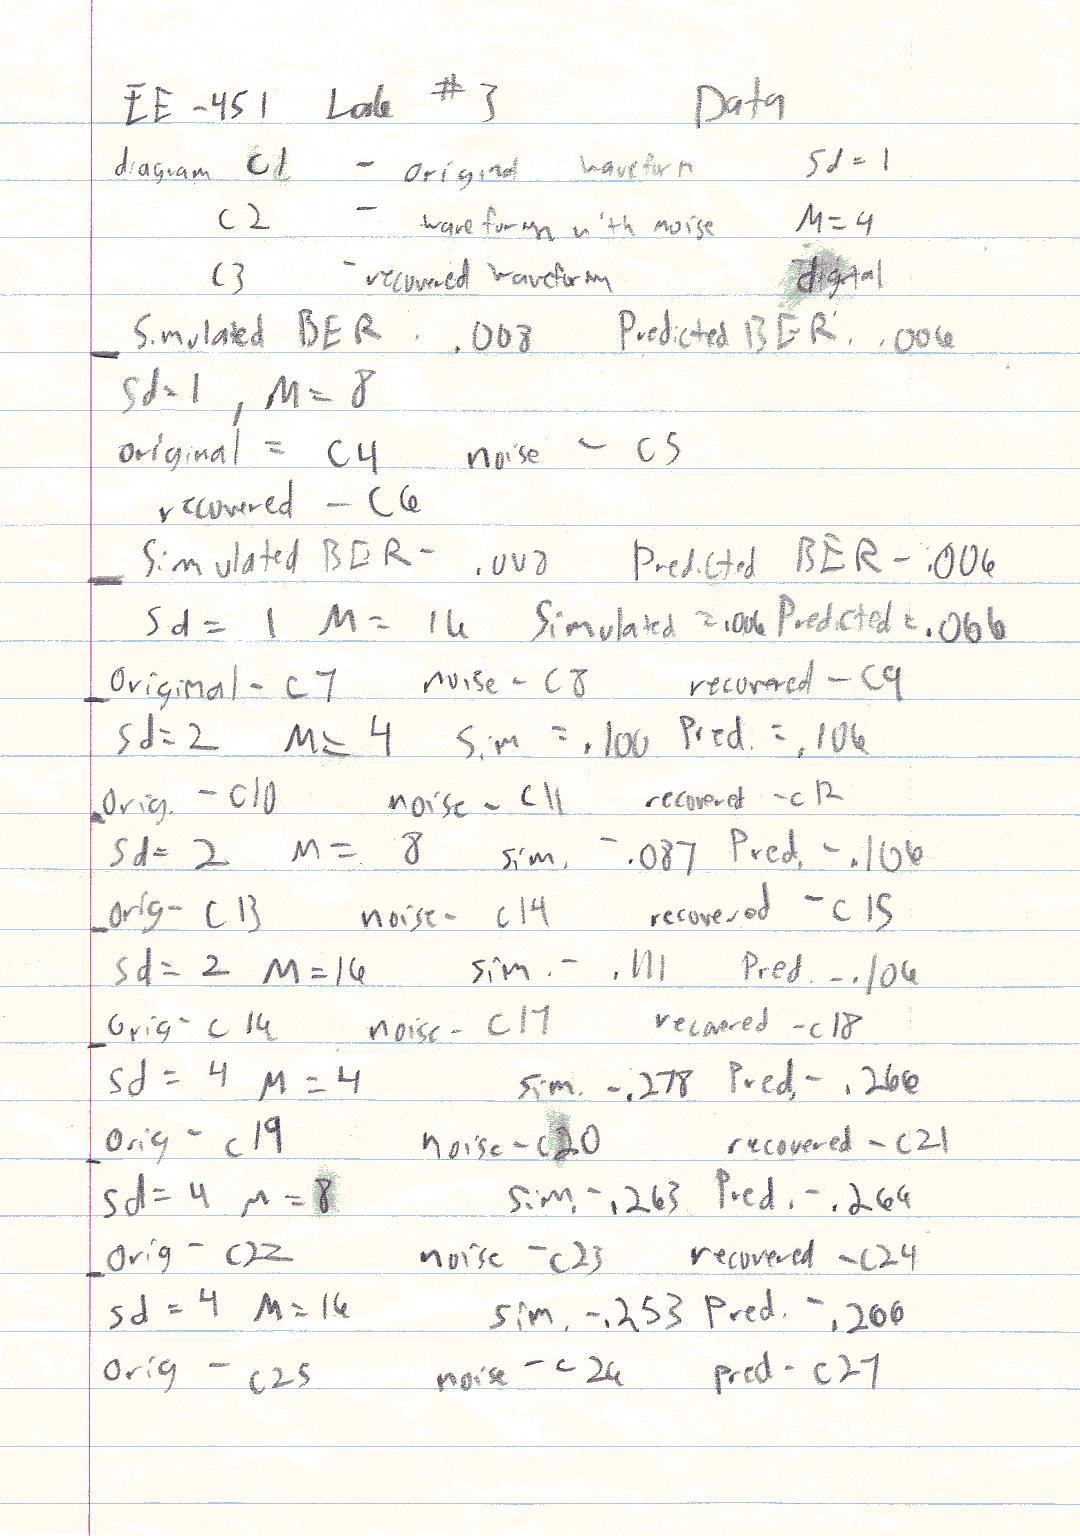 EE-451 Lab #3 Data
diagram C1 - original waveform Sd=1
C2 - waveform with noise M=4
C3 - recovered waveform digital
Simulated BER . .008 Predicted BER . .006
Sd=1, M=8
original = C4 noise - C5
recovered - C6
Simulated BER - Predicted BER - .006
Sd=1 M=16 Simulated = .006 Predicted = .066
Original - C7 noise - C8 recovered - C9
Sd=2 M=4 Sim = .100 Pred. = .106
Orig. - C10 noise - C11 recovered - C12
Sd=2 M=8 sim. - .087 Pred. - .106
orig - C13 noise - C14 recovered - C15
Sd=2 M=16 sim. - .111 Pred. - .106
Orig - C16 noise - C17 recovered - C18
Sd=4 M=4 sim. - .278 Pred. - .266
Orig - C19 noise - C20 recovered - C21
Sd=4 M=8 sim. - .263 Pred. - .266
Orig - C22 noise - C23 recovered - C24
Sd=4 M=16 sim. - .253 Pred. - .266
Orig - C25 noise - C26 pred - C27